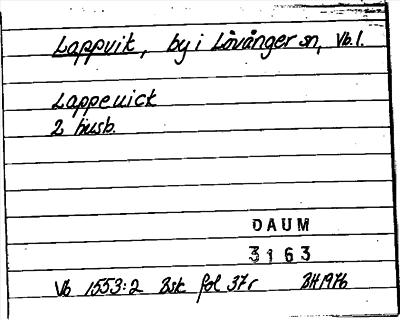 Lappvik, by i Lövånger sn, Vb.l.
Lappeuick
2 husb.
DAUM
3163
Vb 1553:2 Bsk fol 37r BH 1976